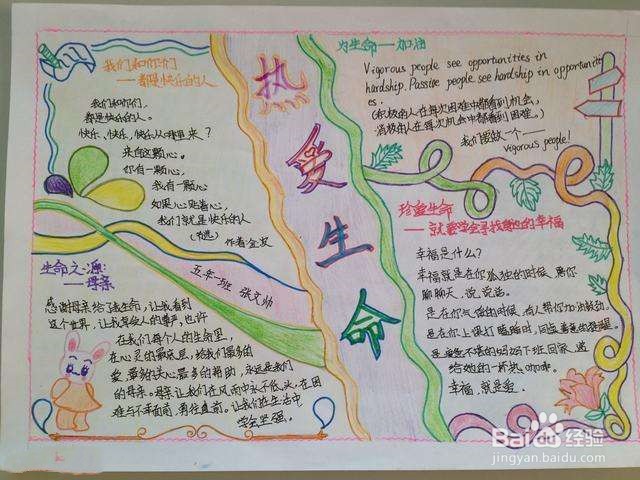 热爱生命
我们和你们
——都是快乐的人
我们和你们,
都是快乐的人。
快乐、快乐、快乐从哪里来?
来自这颗心。
你有一颗心,
我有一颗心
如果心贴着心,
我们就是快乐的人
(节选)
作者:金波
为生命——加油
Vigorous people see opportunities in
hardship. Passive people see hardship in opportuniti
es.
(积极的人在每次困难中都看到机会,
消极的人在每次机会中都看到困难。)
我们要做一个——
vigorous people!
珍重生命
——就要学会寻找她的幸福
幸福是什么?
幸福就是在你孤独的时候,帮你
聊聊天,说说话。
是在你气馁的时候,有人帮你加油鼓劲。
是在你上课打瞌睡时,同桌善意的提醒。
是疲惫不堪的妈妈下班回家,递
给她的一杯热
幸福就是爱.
生命之源
——母亲
五年一班 张文帅
感谢母亲给了我生命,让我看到
这个世界,让我享受人的尊严,也许
在我们每个人的生命里,
在心灵的最底层,给我们最多的
爱,最多的关心最多的帮助,永远是我们
的母亲。母亲让我们在风雨中永不低头,在困
难与不幸面前,勇往直前。让我们在生活中
学会坚强。
Baidu经验
jingyan.baidu.com